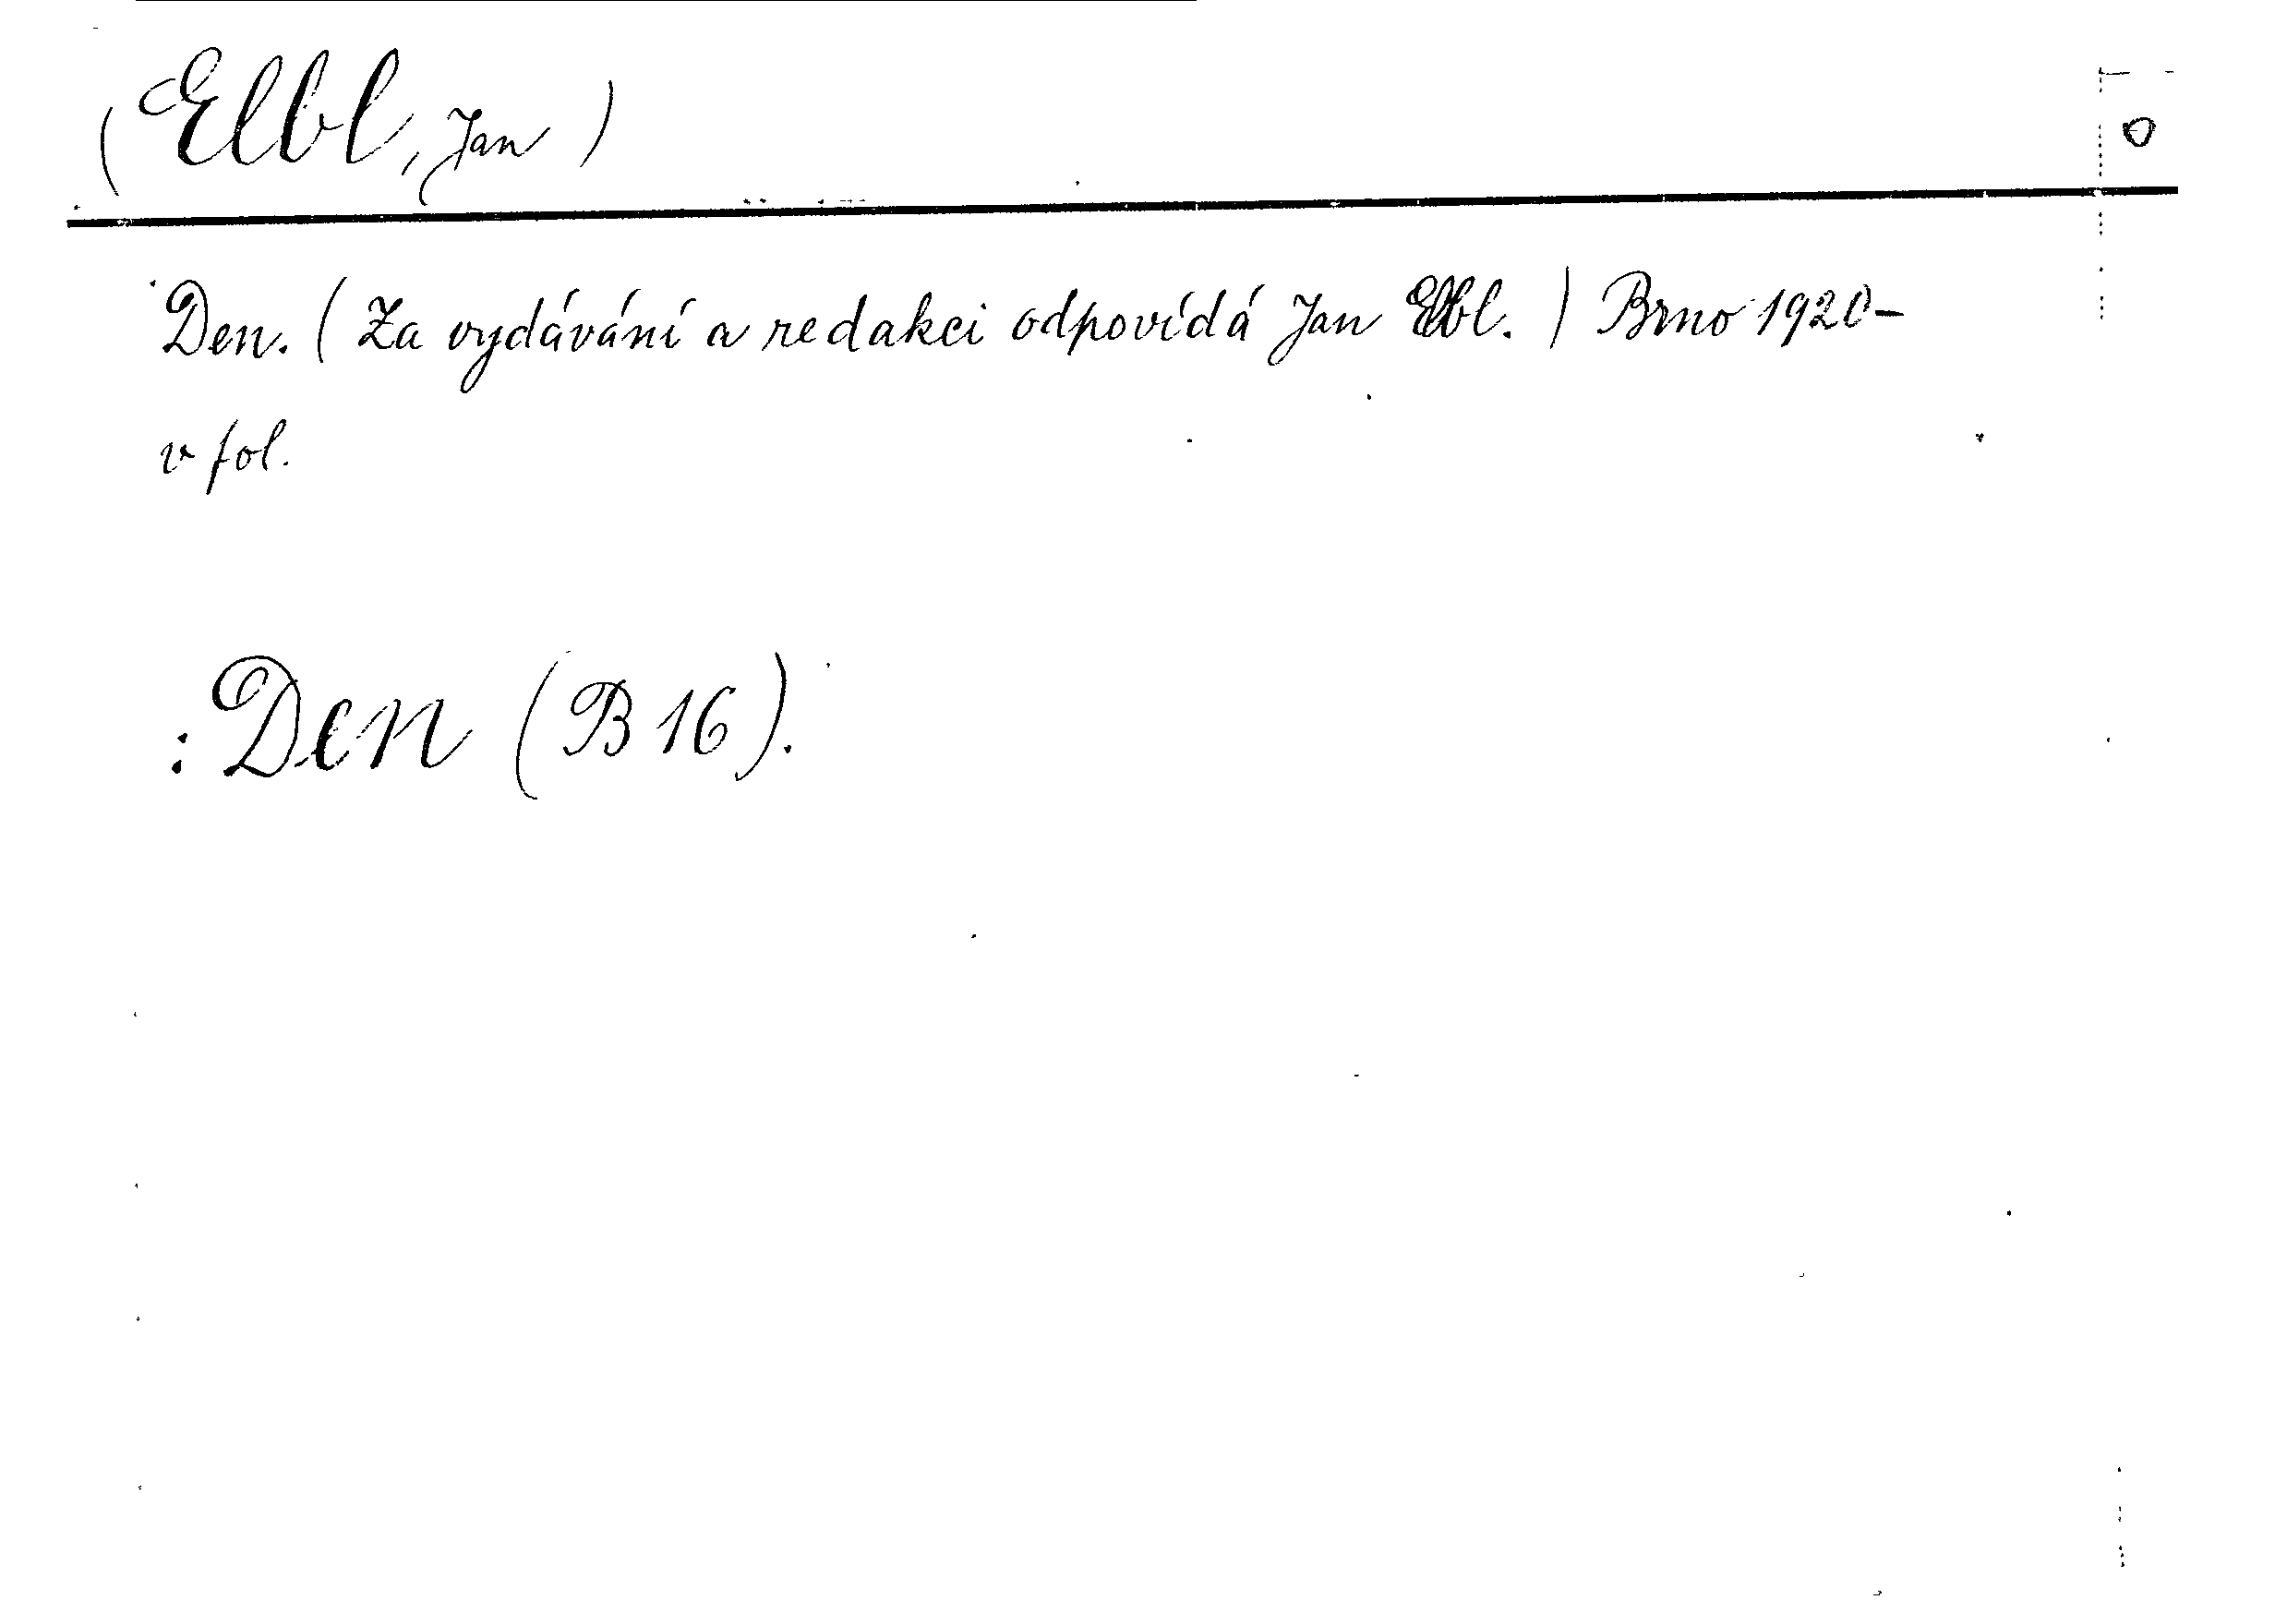 (Elbl, Jan) O
Den. (Za vydávání a redakci odpovídá Jan Elbl.) Brno 1920-
v fol.
: Den (B 16).